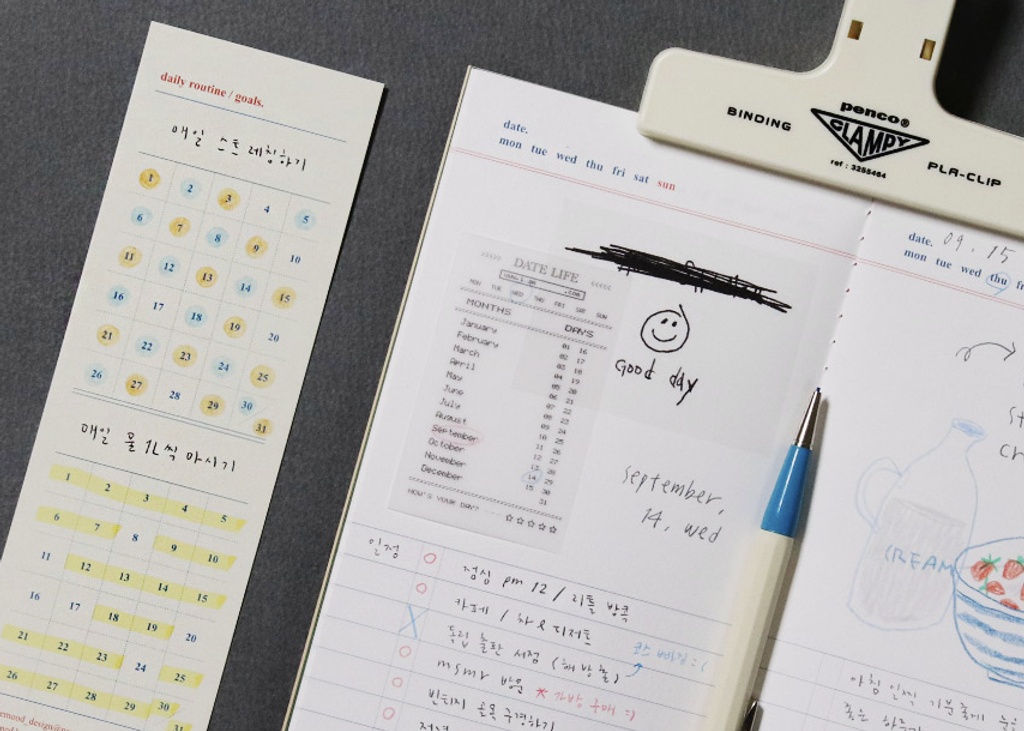 daily routine / goals.
매일 스트레칭하기
1 2 3 4 5
6 7 8 9 10
11 12 13 14 15
16 17 18 19 20
21 22 23 24 25
26 27 28 29 30
31
매일 물 1L씩 마시기
1 2 3 4 5
6 7 8 9 10
11 12 13 14 15
16 17 18 19 20
21 22 23 24 25
26 27 28 29 30
31
date.
mon tue wed thu fri sat sun
DATE LIFE
MON TUE WED THU FRI SAT SUN
MONTHS DAYS
January 01 16
February 02 17
March 03 18
April 04 19
May 05 20
June 06 21
July 07 22
August 08 23
September 09 24
October 10 25
November 11 26
December 12 27
13 28
14 29
15 30
31
HOW'S YOUR DAY? ☆☆☆☆☆
Good day
September,
14, wed
일정
점심 pm 12 / 리틀 방콕
카페 / 차 & 디저트
독립 출판 서점 (해방촌)
코스 빠짐 :(
msmr 방문 * 가방 구매 :)
빈티지 골목 구경하기
저녁
BINDING
penco®
CLAMPY
ref : 3255464
PLA-CLIP
date. 09. 15
mon tue wed thu
CREAM
아침 일찍 기분 좋게
좋은 하루